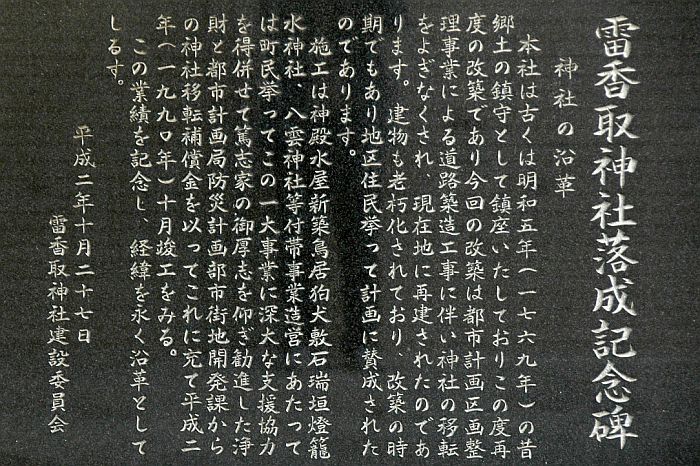 雷香取神社落成記念碑
神社の沿革
本社は古くは明和五年(一七六九年)の昔
郷土の鎮守として鎮座いたしておりこの度再
度の改築であり今回の改築は都市計画区画整
理事業による道路築造工事に伴い神社の移転
をよぎなくされ、現在地に再建されたのであ
ります。建物も老朽化されており、改築の時
期でもあり地区住民挙って計画に賛成された
のであります。
施工は神殿水屋新築鳥居狛犬敷石瑞垣燈籠
水神社、八雲神社等付帯事業造営にあたって
は町民挙ってこの一大事業に深大な支援協力
を得併せて篤志家の御厚志を仰ぎ勧進した浄
財と都市計画局防災計画部市街地開発課から
の神社移転補償金を以ってこれに充て平成二
年(一九九〇年)十月竣工をみる。
この業績を記念し、経緯を永く沿革として
しるす。
平成二年十月二十七日
雷香取神社建設委員会